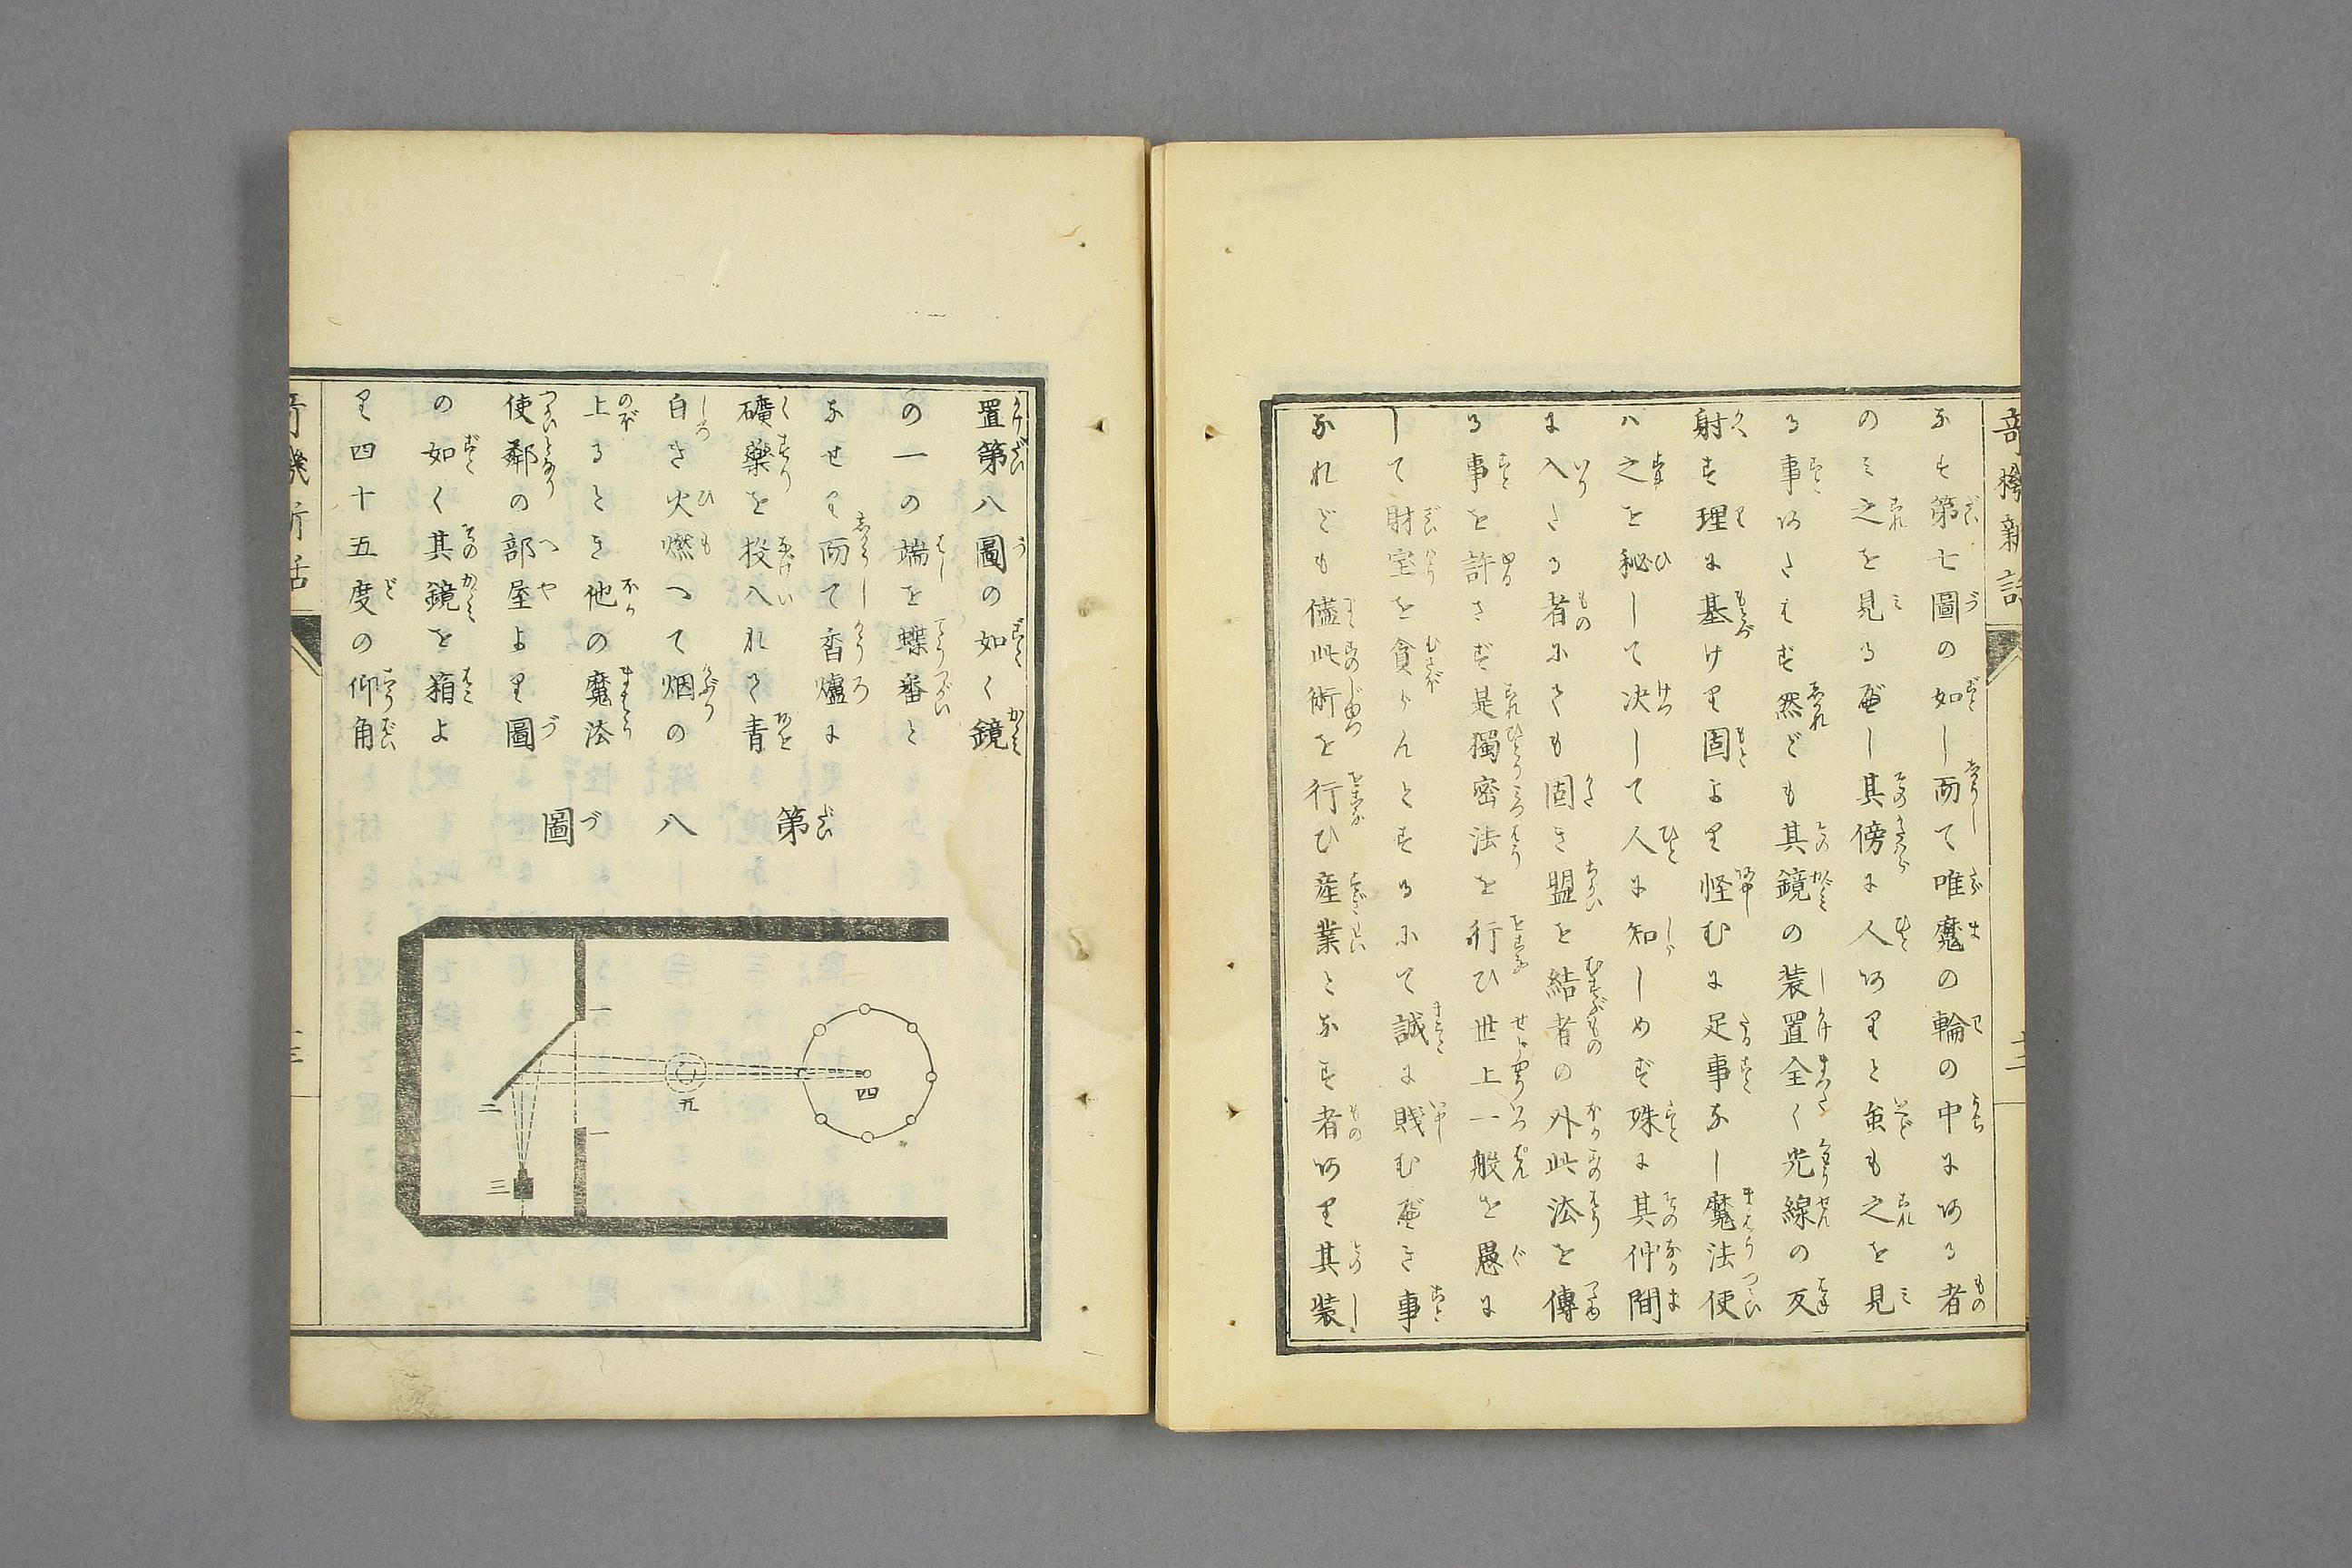 奇機新話
なす第七圖の如し而て唯魔の輪の中にある者
のミ之を見る可し其傍に人ありと虽も之を見
る事あたはず然ども其鏡の装置全く光線の反
射す理に基けり固より怪むに足事なし魔法使
ハ之を秘して决して人に知しめず殊に其仲間
に入たる者にても固き盟を結者の外此法を傳
る事を許さず是獨密法を行ひ世上一般を愚に
して財宝を貪らんとするにて誠に賎む可き事
なれども儘此術を行ひ産業となす者あり其装
置第八圖の如く鏡
の一の端を蝶番と
なせり而て香爐に
礦藥を投入れく青
白き火燃つて烟の
上るとき他の魔法
使鄰の部屋より圖
の如く其鏡を箱よ
り四十五度の仰角
第八圖
一
二
三
一
四
五
奇機新話
三